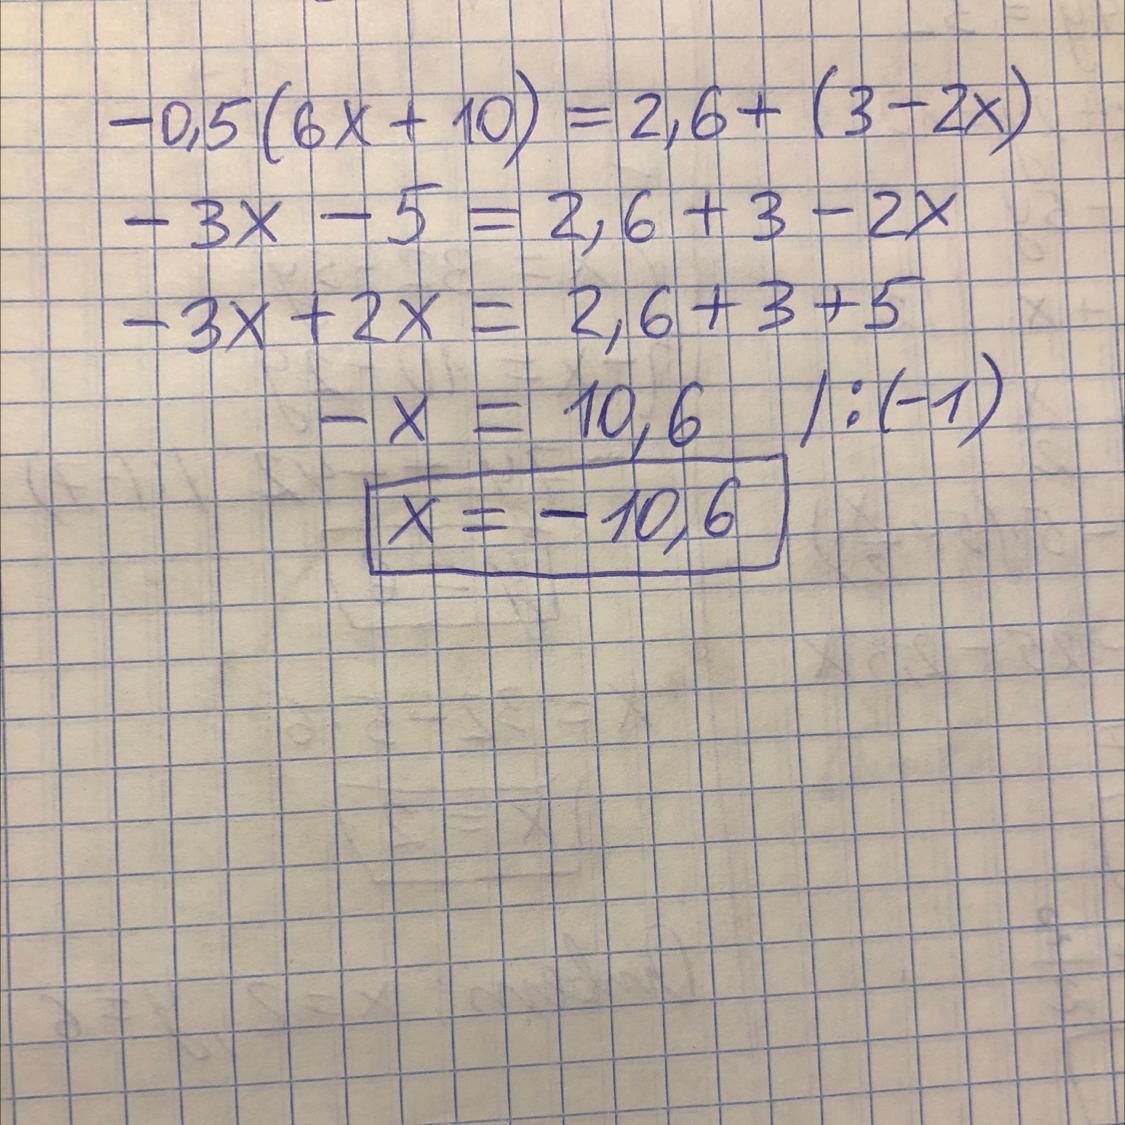 -0,5(6x + 10) = 2,6 + (3 - 2x)
-3x - 5 = 2,6 + 3 - 2x
-3x + 2x = 2,6 + 3 + 5
-x = 10,6 / : (-1)
x = -10,6